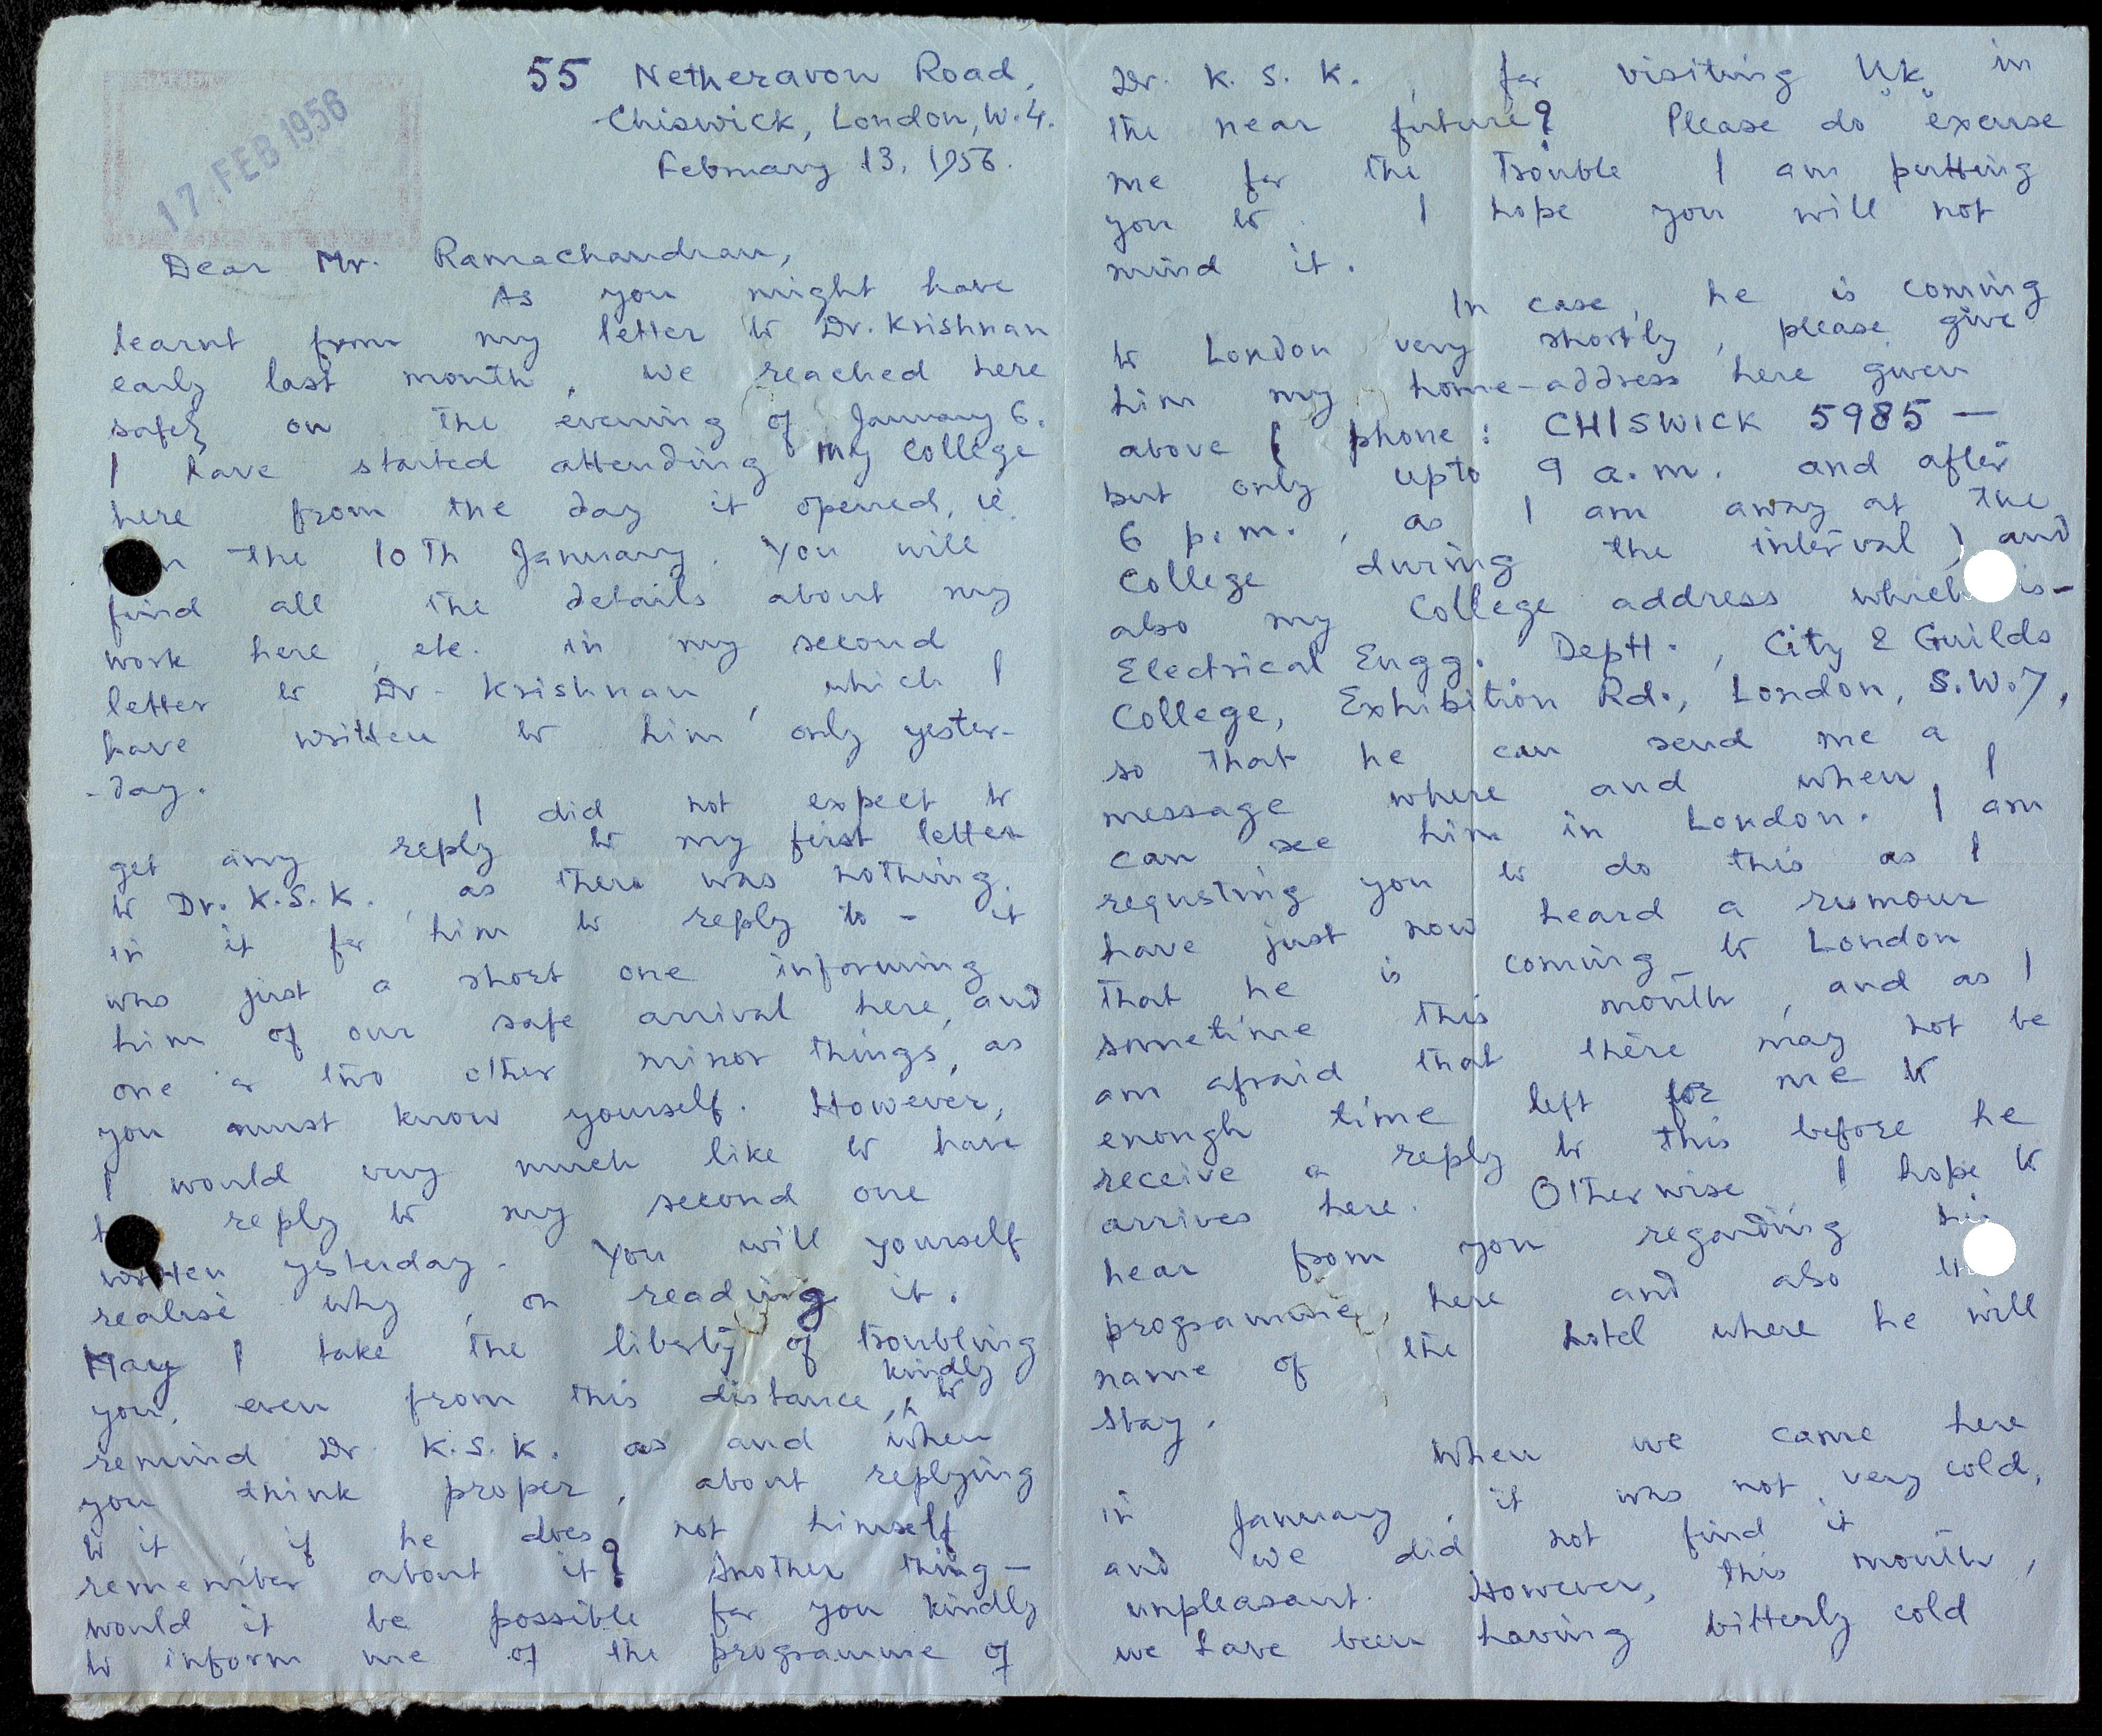 17 FEB 1956
55 Netheravon Road,
Chiswick, London, W.4.
February 13, 1956.
Dear Mr. Ramachandran,
As you might have
learnt from my letter to Dr. Krishnan
early last month, we reached here
safely on the evening of January 6.
I have started attending my College
here from the day it opened, ie.
on the 10th January. You will
find all the details about my
work here, etc. in my second
letter to Dr. Krishnan, which I
have written to him only yester-
-day.
I did not expect to
get any reply to my first letter
to Dr. K.S.K., as there was nothing
in it for him to reply to - it
was just a short one informing
him of our safe arrival here, and
one or two other minor things, as
you must know yourself. However,
I would very much like to have
reply to my second one
written yesterday. You will yourself
realise why, on reading it.
May I take the liberty of troubling
you, even from this distance, kindly to
remind Dr K.S.K. as and when
you think proper, about replying
to it, if he does not himself
remember about it? Another thing —
would it be possible for you kindly
to inform me of the programme of
Dr. K. S. K., for visiting U.K. in
the near future? Please do excuse
me for the trouble I am putting
you to. I hope you will not
mind it.
In case, he is coming
to London very shortly, please give
him my home-address here given
above ( phone: CHISWICK 5985 —
but only upto 9 a.m. and after
6 p.m., as I am away at the
College during the interval ) and
also my College address which is-
Electrical Engg. Deptt., City & Guilds
College, Exhibition Rd., London, S.W.7,
so that he can send me a
message where and when I
can see him in London. I am
requsting you to do this as I
have just now heard a rumour
that he is coming to London
sometime this month, and as I
am afraid that there may not be
enough time left for me to
receive a reply to this before he
arrives here. Otherwise, I hope to
hear from you regarding his
programme here and also the
name of the hotel where he will
stay.
When we came here
in January, it was not very cold,
and we did not find it
unpleasant. However, this month,
we have been having bitterly cold